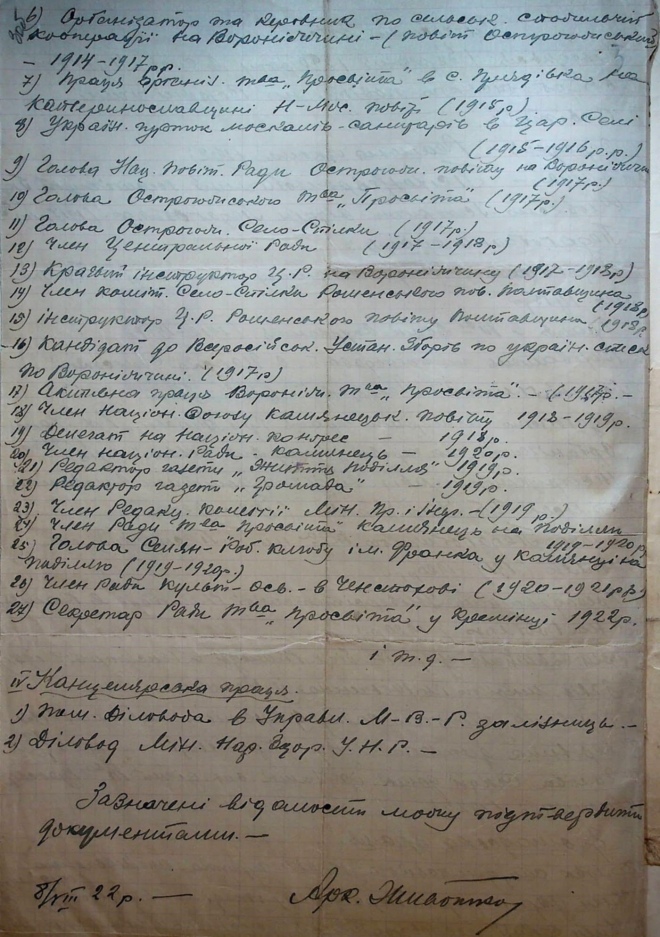 6) Організатор та керовник по сельськ. споживчій
кооперації на Вороніжчині – (повіт Острогожський)
– 1914-1917 р.р.
7) Праця організ. т-ва „Просвіта" в с. на
Катеринославщині Н-Мос. повіт (1915 р)
8) Україн. гурток москалів-санитарів в Цар. Селі
(1915-1916 р.р.)
9) Голова Нац. Повіт. Ради Острогожск. повіту на Вороніжчині
(1917р)
10) Голова Острогожського т-ва „Просвіта" (1917р.)
11) Голова Острогож. Село-Спілки (1917р.)
12) Член Центральної Ради (1917-1918р)
13) Краєвий інструктор Ц.Р. на Вороніжчину (1917-1918р)
14) Член коміт. Село-Спілки Роменського пов. Полтавщина
(1918р)
15) інструктор Ц.Р. Роменського повіту Полтавщина (1918р.
16) Кандідат до Всеросійськ. Устан. Зборів по україн. списк
по Вороніжчині. (1917р)
17) Активна праця Вороніж. т-ва „Просвіта". – (1917р. –
18) Член Націон. Союзу камянецьк. повіту 1918-1919р.
19) Делегат на націон. конгрес – 1918р.
20) Член націон. Ради. камянець – 1920р.
21) Редактор газети „Життя Поділля" 1919р.
22) Редактор газети „Громада" – 1919р.
23) Член Редакц. колегії Мін. Пр. і Інф. – (1919р.)
24) Член Ради т-ва Просвіта" камянець на Поділлю
1919-1920р
25) Голова Селян-Роб. клюбу ім. Франка у камянці на
Поділлю (1919-1920р.)
26) Член Ради культ-осв. – в Ченстохові (1920-1921рр)
27) Секретар Ради т-ва „Просвіта" у Кремінці 1922р.
і т. д. –
IV Канцелярська праця.
1) Пом. Діловода в Управл. М-В-Р. залізниць. –
2) Діловод Мін. Нар. Здор. У.Н.Р. –
Зазначені відомости можу підтвердити
документами. –
8/VIII 22р. – Арк. Животко